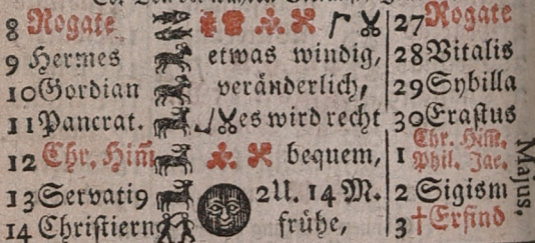 8 Rogate 27 Rogate
9 Hermes etwas windig, 28 Vitalis
10 Gordian veränderlich, 29 Sybilla
11 Pancrat. es wird recht 30 Erastus
12 Chr. Him̃ bequem, 1 Chr. Him. Phil. Jac.
13 Servati9 2U. 14 M. 2 Sigism
14 Christiern frühe, 3 †Erfind
Majus,